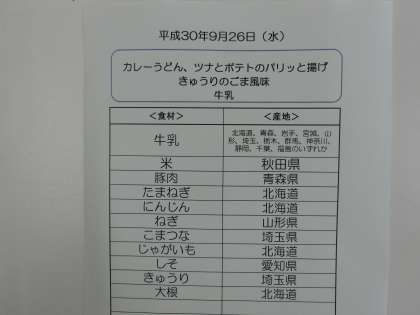 平成30年9月26日（水）
カレーうどん、ツナとポテトのパリッと揚げ
きゅうりのごま風味
牛乳
＜食材＞ ＜産地＞
牛乳 北海道、青森、岩手、宮城、山
形、埼玉、栃木、群馬、神奈川、
静岡、千葉、福島のいずれか
米 秋田県
豚肉 青森県
たまねぎ 北海道
にんじん 北海道
ねぎ 山形県
こまつな 埼玉県
じゃがいも 北海道
しそ 愛知県
きゅうり 埼玉県
大根 北海道